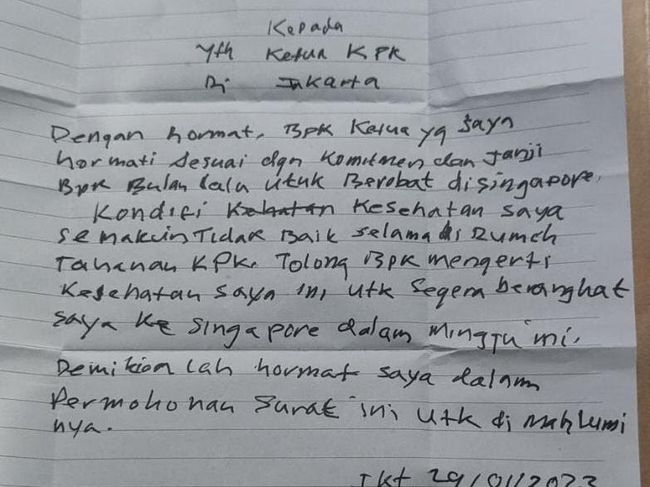 Kepada
Yth Ketua KPK
Di Jakarta
Dengan hormat, BPK Ketua yg saya
hormati sesuai dgn komitmen dan Janji
BPK Bulan lalu utuk Berobat disingapore.
Kondisi Kesehatan saya
semakin Tidak Baik selama di Rumah
Tahanan KPK. Tolong BPK mengerti
Kesehatan saya ini utk segera berangkat
saya ke singapore dalam minggu ini.
Demikian lah hormat saya dalam
Permohonan surat ini utk di mahlumi
nya.
Jkt 29/01/2023